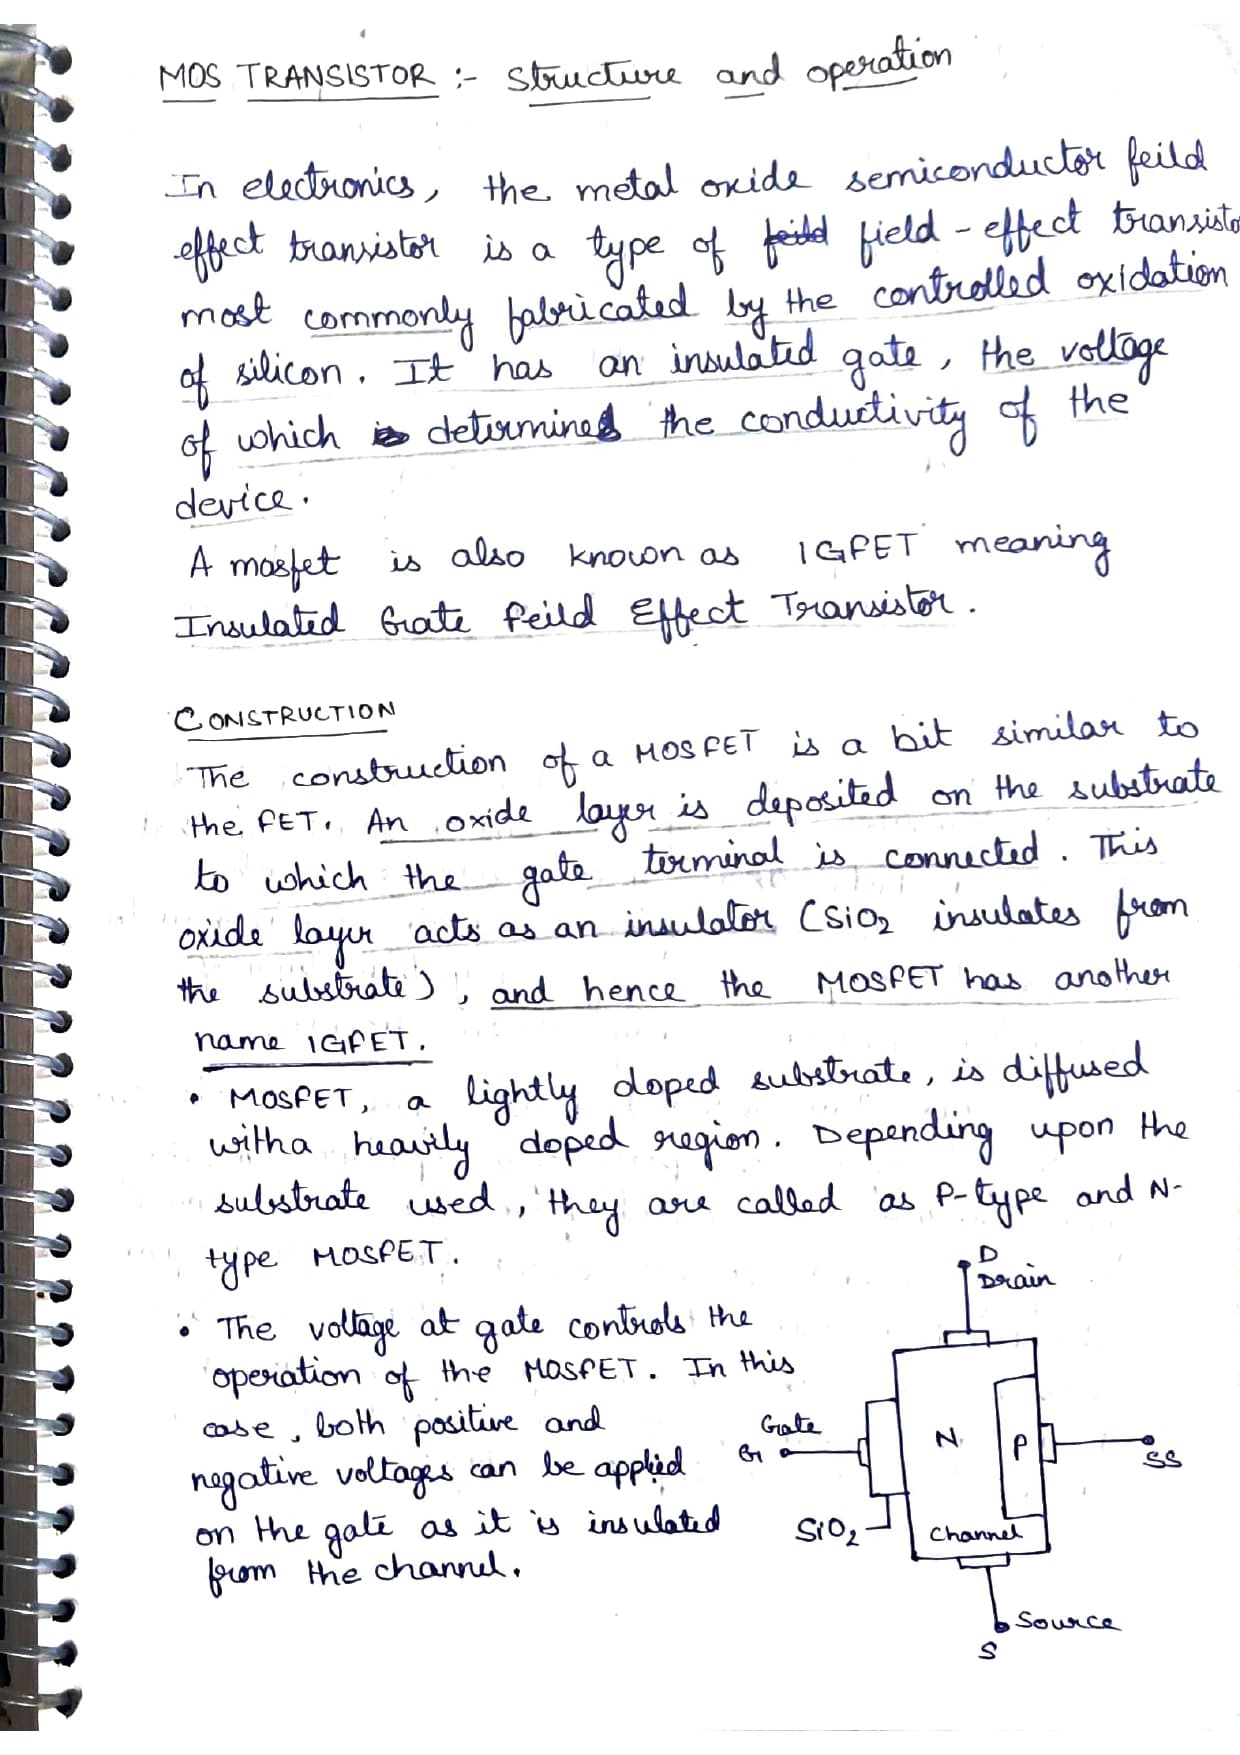 MOS TRANSISTOR :- Structure and operation
In electronics, the metal oxide semiconductor feild
effect transistor is a type of feild field - effect transisto
most commonly fabricated by the controlled oxidation
of silicon. It has an insulated gate, the voltage
of which is determines the conductivity of the
device.
A mosfet is also known as IGFET meaning
Insulated Gate Feild Effect Transistor.
CONSTRUCTION
The construction of a MOSFET is a bit similar to
the FET. An oxide layer is deposited on the substrate
to which the gate terminal is connected. This
oxide layer acts as an insulator (SiO2 insulates from
the substrate), and hence the MOSFET has another
name IGFET.
• MOSFET, a lightly doped substrate, is diffused
witha heavily doped region. Depending upon the
substrate used, they are called as P-type and N-
type MOSFET.
D
Drain
• The voltage at gate controls the
operation of the MOSFET. In this
case, both positive and
negative voltages can be applied
on the gate as it is insulated
from the channel.
Gate
G
N
P
SS
SiO2
Channel
Source
S